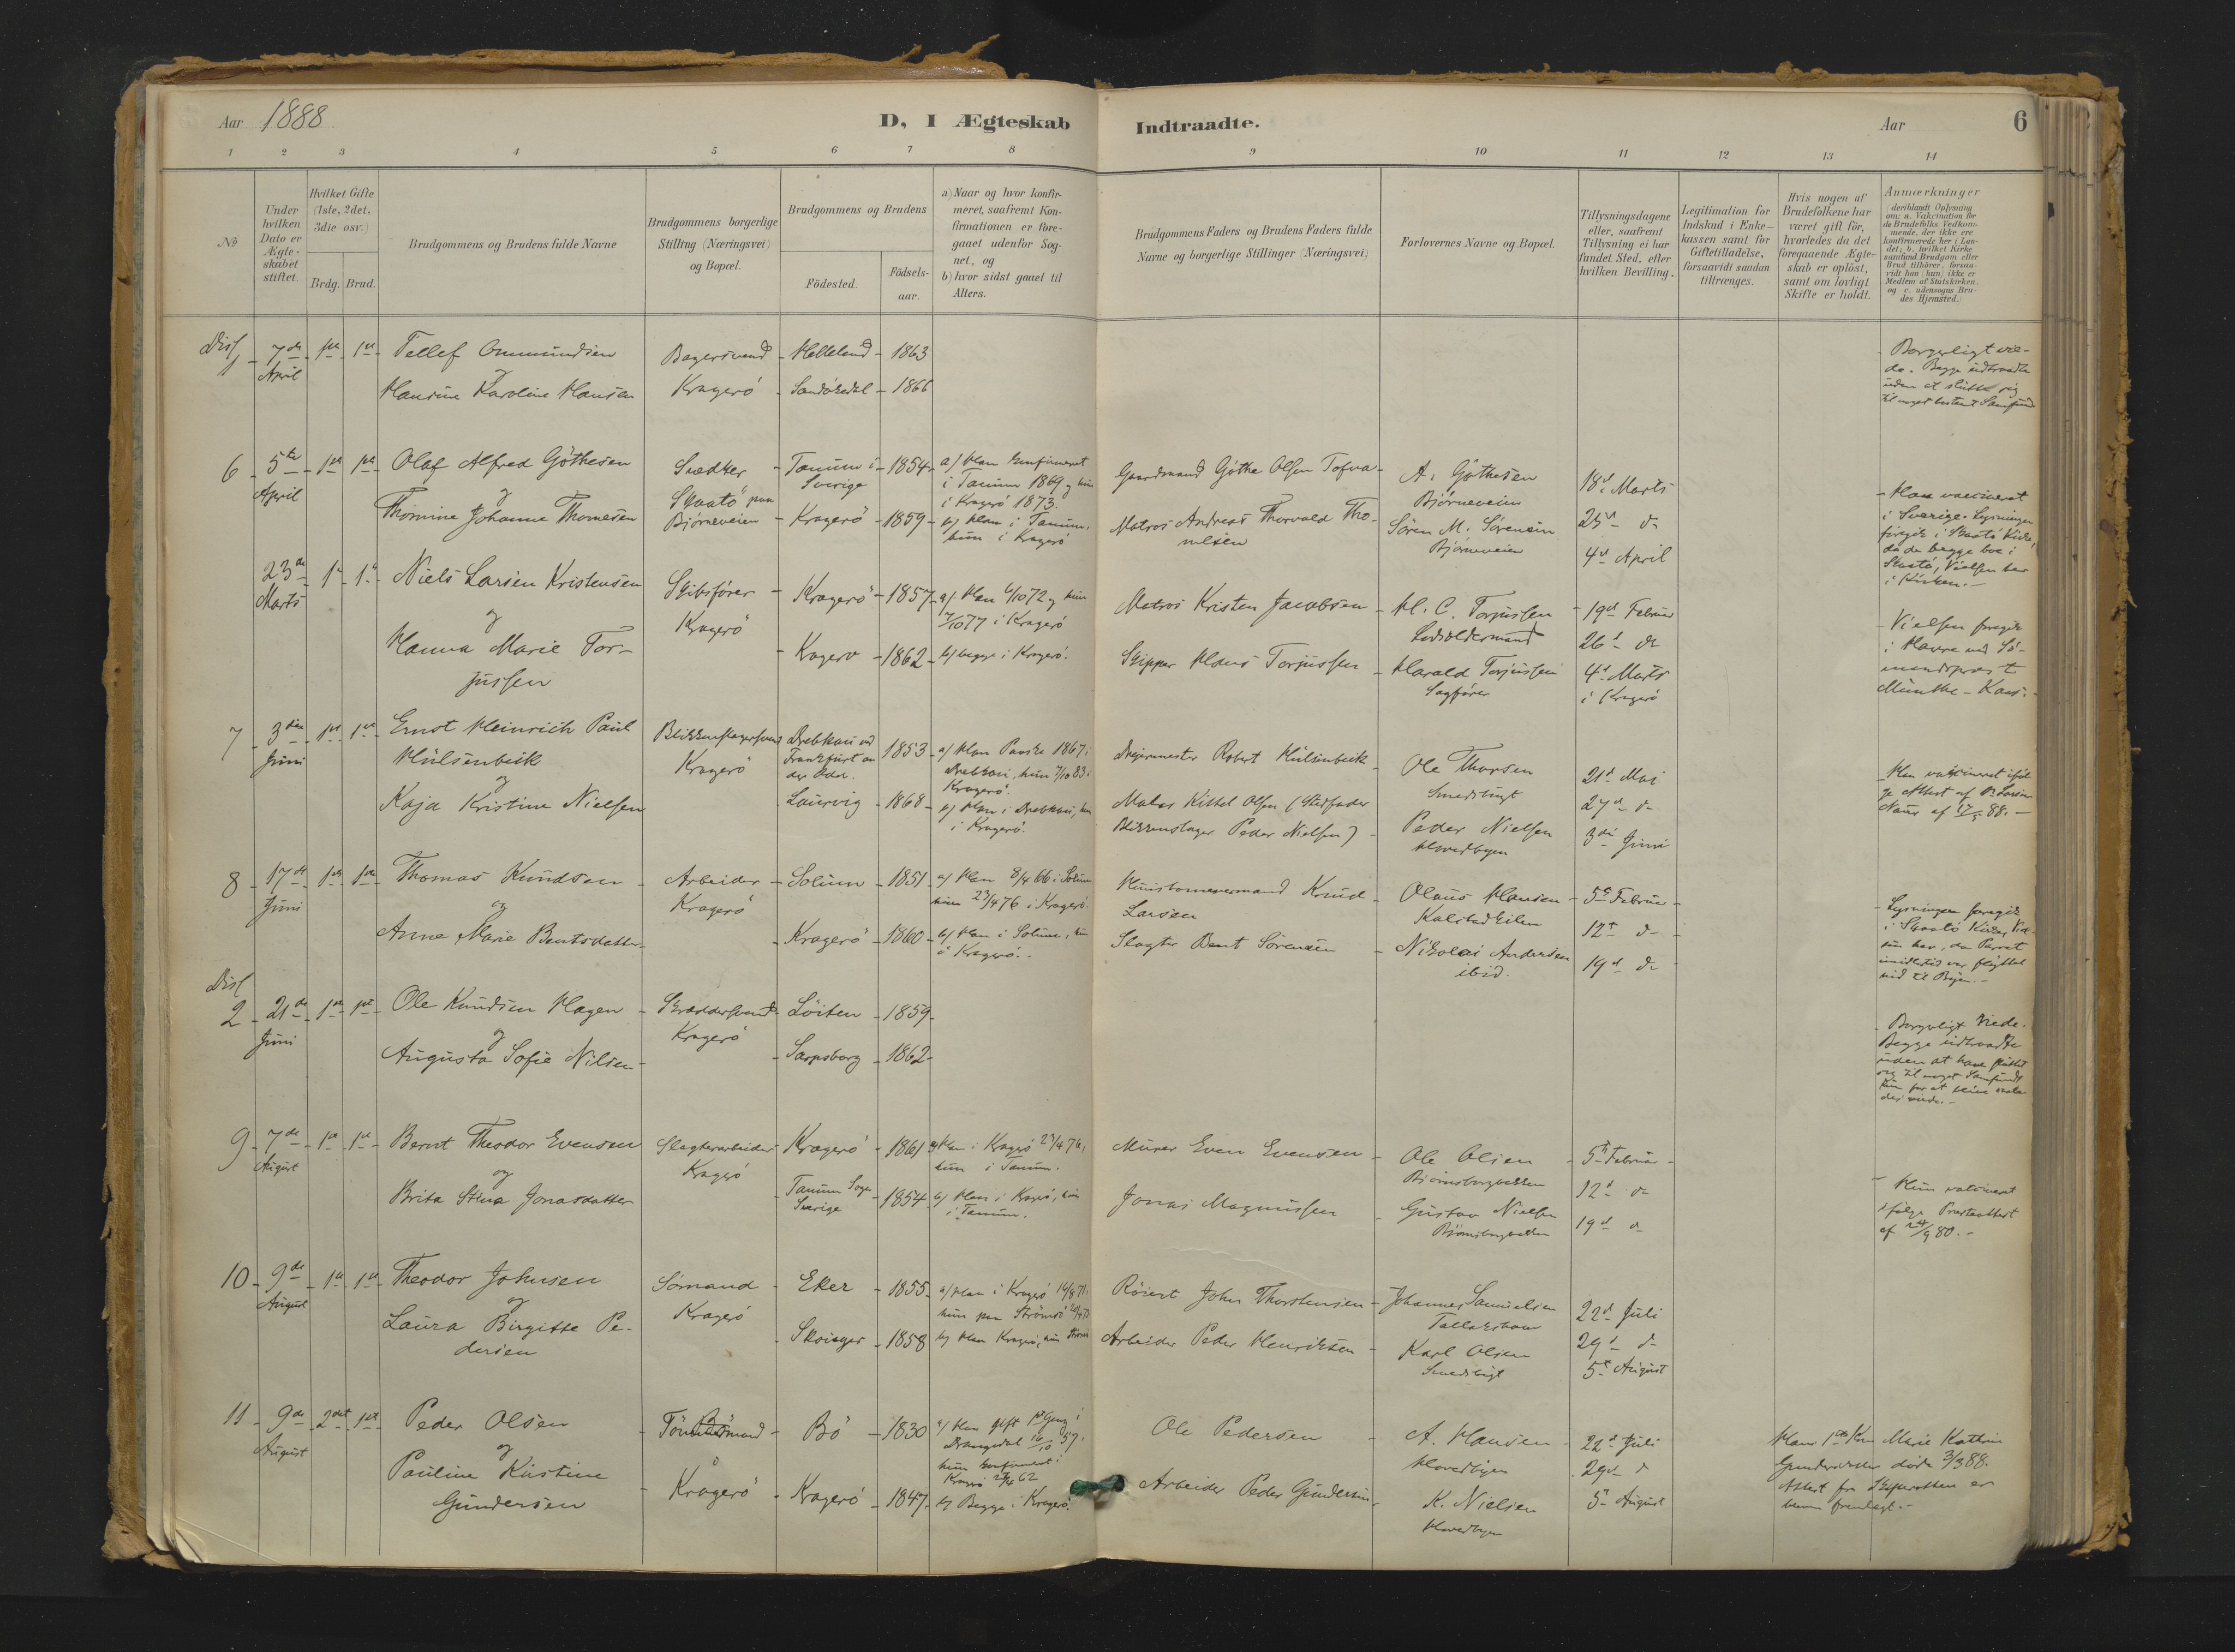 Aar 1888
D, I Ægteskab
Indtraadte.
Aar
6
1 2 3 4 5 6 7 8 9 10 11 12 13 14
No
Under
hvilken
Dato er
Ægte-
skabet
stiftet.
Hvilket Gifte
(1ste, 2det,
3die osv.)
Brdg. Brud.
Brudgommens og Brudens fulde Navne
Brudgommens borgerlige
Stilling (Næringsvei)
og Bopæl.
Brudgommens og Brudens
Födested.
Födsels-
aar.
a) Naar og hvor konfir-
meret, saafremt Kon-
firmationen er fore-
gaaet udenfor Sog-
net, og
b) hvor sidst gaaet til
Alters.
Brudgommens Faders og Brudens Faders fulde
Navne og borgerlige Stillinger (Næringsvei)
Forlovernes Navne og Bopæl.
Tillysningsdagene
eller, saafremt
Tillysning ei har
fundet Sted, efter
hvilken Bevilling.
Legitimation for
Indskud i Enke-
kassen samt for
Giftetilladelse,
forsaavidt saadan
tiltrænges.
Hvis nogen af
Brudefolkene har
været gift för,
hvorledes da det
foregaaende Ægte-
skab er oplöst,
samt om lovligt
Skifte er holdt.
Anmærkninger
(deriblandt Oplysning
om: a. Vakcination for
de Brudefolks Vedkom-
mende, der ikke ere
konfirmerede her i Lan-
det; b. hvilket Kirke
samfund Brudgom eller
Brud tilhörer, forsaa-
vidt han (hun) ikke er
Medlem af Statskirken,
og c. udensogns Bru-
des Hjemsted.)
Diss
1 - 7de - 1ste - 1ste - Tellef Ommundsen
April
og
Hansine Karoline Hansen
Bagersvend
Kragerö
Helleland - 1863
Sandökedal - 1866
Borgerligt vie-
de. Begge udtraadte
uden at slutte sig
til noget bestemt Samfund
6 - 5te - 1ste - 1ste - Olaf Alfred Göthesen
April
og
Thomine Johanne Thomesen
Snedker
Skaatö paa
Bjørneveien
Tanum i - 1854
Sverige
Kragerö - 1859
a) Han konfirmeret
i Tanum 1869 og hun
i Kragerö 1873.
b) Han i Tanum,
hun i Kragerö
Gaardmand Göthe Olsen Tofva
Matros Andreas Thorvald Tho-
mesen
A. Göthesen
Bjørneveien
Sören M. Sörensen
Bjørneveien
18d Marts
25d do
4d April
Han vaccineret
i Sverige. Lysningen
foregik i Skaatö Kirke,
da de begge boe i
Skaatö, Vielsen her
i Kirken.
23de - 1ste - 1ste - Niels Larsen Kristensen
Marts
og
Hanna Marie Tor-
jussen
Skibsförer
Kragerö
Kragerö - 1857
Kragerø - 1862
a) Han 6/10 72 og hun
7/10 77 i Kragerö
b) begge i Kragerö.
Matros Kristen Jacobsen
Skipper Hans Torjussen
H. C. Torjussen
Lodsoldermand
Harald Torjussen
Sagförer
19d Februar
26d do
4d Marts
i Kragerö
Vielsen foregik
i Havre ved Sö-
mandsprest
Munthe-Kaas.
7 - 3die - 1ste - 1ste - Ernst Heinrich Paul
Juni
Hülsenbeck
og
Kaja Kristine Nielsen
Blikkenslagersvend
Kragerö
Drebkau ved
Frankfurt an
der Oder.
1853
Laurvig - 1868
a) Han Paaske 1867 i
Drebkau, hun 7/10 83 i
Kragerö.
b) Han i Drebkau, hun
i Kragerö.
Dreiermester Robert Hülsenbeck
Maler Kittel Olsen (Stedfader
Blikkenslager Peder Nielsen)
Ole Thorsen
Smedsbugt
Peder Nielsen
Hovedbyen
21d Mai
27d do
3die Juni
Han vaccineret iföl-
ge Attest af Dr. Larsen
Naur af 17/5 88.
8 - 17de - 1ste - 1ste - Thomas Knudsen
Juni
og
Anne Marie Bentsdatter
Arbeider
Kragerö
Solum - 1851
Kragerö - 1860
a) Han 8/4 66 i Solum
hun 23/4 76 i Kragerö.
b) Han i Solum, hun
i Kragerö.
Huustømmermand Knud
Larsen
Slagter Bent Sörensen
Olaus Hansen
Kalstadkilen
Nikolai Andersen
ibid.
5te Februar
12te do
19d do
Lysningen foregik
i Skaatö Kirke, Viel-
sen her, da Parret
imidlertid var flyttet
ind til Byen.
Diss
2 - 21de - 1ste - 1ste - Ole Knudsen Hagen
Juni
og
Augusta Sofie Nilsen
Skræddersvend
Kragerö
Löiten - 1859
Sarpsborg - 1862
Borgerligt Viede.
Begge udtraadte
uden at have sluttet
sig til noget Samfund
9 - 7de - 1ste - 1ste - Bernt Theodor Evensen
August
og
Brita Stina Jonasdatter
Slagterarbeider
Kragerö
Kragerö - 1861
Tanum Sogn
Sverige
1854
a) Han i Kragerö 23/4 76,
hun i Tanum.
b) Han i Kragerö, hun
i Tanum.
Murer Even Evensen
Jonas Magnussen
Ole Olsen
Bjørnsborgbakken
Gustav Nielsen
Bjørnsborgbakken
5te Februar
12d do
19d do
Hun vaccineret
ifølge Præsteattest
af 24/9 80.
10 - 9de - 1ste - 1ste - Theodor Johnsen
August
og
Laura Birgitte Pe-
dersen
Sømand
Kragerö
Eker - 1855
Skoieger - 1858
a) Han i Kragerö
hun paa Strömsö
b) Han Kragerö, hun
Röiert John Thorstensen
Arbeider Peder Henriksen
Johannes Samuelsen
Tallakshavn
Karl Olsen
Smedsbugt
22d Juli
29d do
5te August
11 - 9de - 2det - 1ste - Peder Olsen
August
og
Pauline Kistine
Gundersen
Tömmermand
Kragerö
Bö - 1830
Kragerö - 1847
a) Han gift 1ste Gang i
Drangedal 16/10 57.
hun konfirmeret i
Kragerö 27/4 62
b) Begge i Kragerö.
Ole Pedersen
Arbeider Peder Gundersen
A. Hansen
Hovedbyen
K. Nielsen
Hovedbyen
22d Juli
29d do
5te August
Hans 1ste Kone Marie Kathrine
Gundersdatter döde 3/3 88.
Attest fra Skifteretten er
fremlagt.